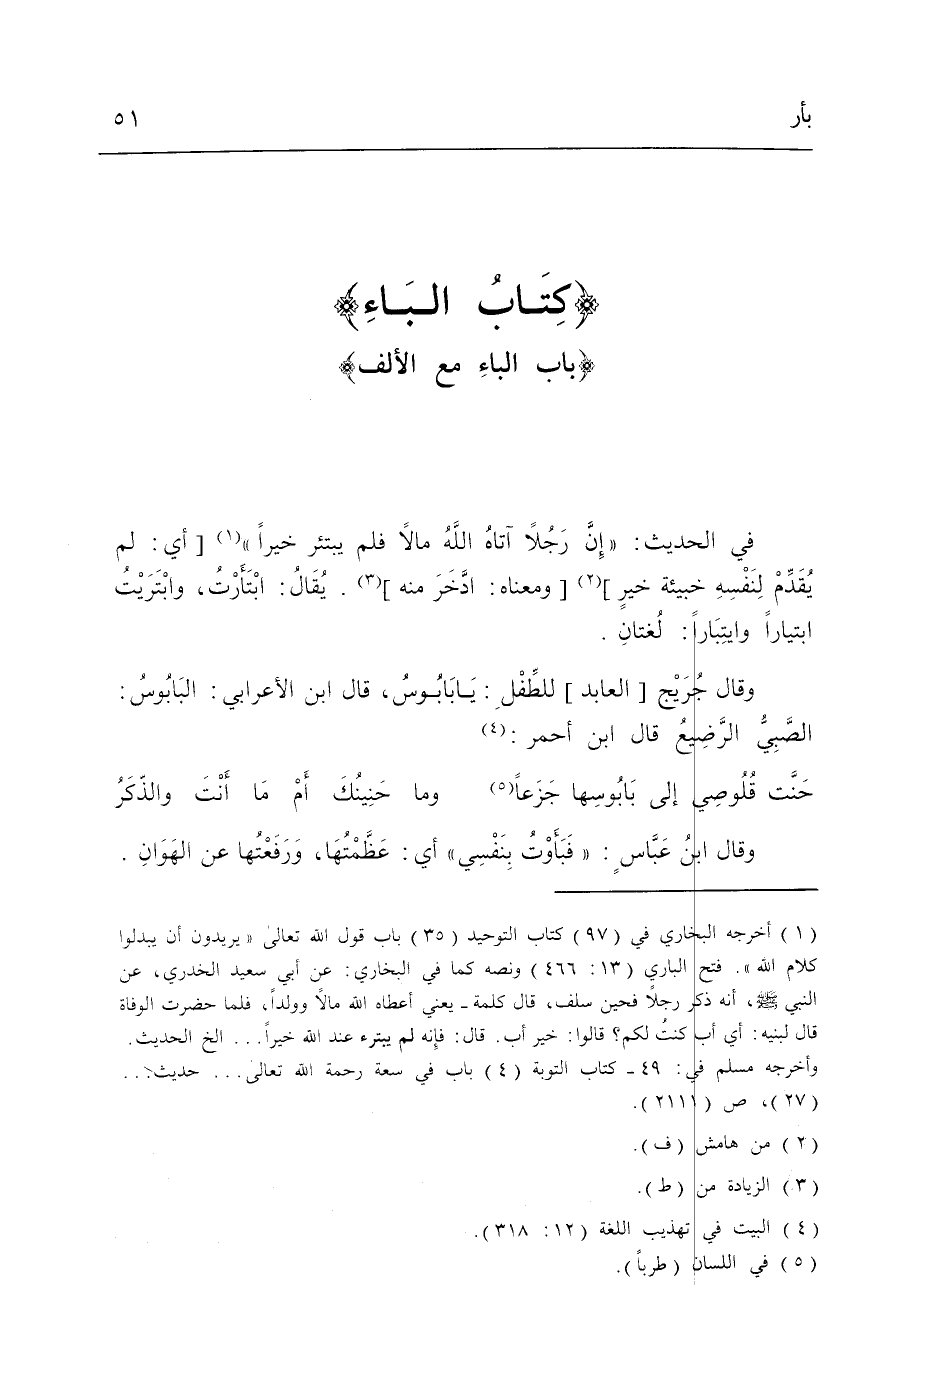 بأر
٥١
﴿كِتَـابُ الـبَـاءِ﴾
﴿باب الباءِ مع الألف﴾
في الحديث: «إِنَّ رَجُلًا آتاهُ اللَّهُ مالاً فلم يبتئر خيراً»(١) [ أي: لم
يُقَدِّمْ لِنَفْسِهِ خبيئة خيرٍ ](٢) [ ومعناه: ادَّخَرَ منه ](٣) . يُقَالُ: ابْتَأَرْتُ، وابْتَرَيْتُ
ابتياراً وايتِبَاراً: لُغتانِ .
وقال جُرَيْج [ العابد ] للطِّفْلِ : يَـابَابُـوسُ، قال ابن الأعرابي: البَابُوسُ:
الصَّبِيُّ الرَّضِيعُ قال ابن أحمر :(٤)
حَنَّت قُلُوصِي إلى بَابُوسِها جَزَعاً(٥) وما حَنِينُكَ أَمْ مَا أَنْتَ والذّكَرُ
وقال ابنُ عَبَّاسٍ : « فَبَأَوْتُ بِنَفْسِي» أي: عَظَّمْتُهَا، وَرَفَعْتُها عن الهَوَانِ .
(١) أخرجه البخاري في (٩٧) كتاب التوحيد (٣٥) باب قول الله تعالىٰ «يريدون أن يبدلوا
كلام الله». فتح الباري (١٣: ٤٦٦) ونصه كما في البخاري: عن أبي سعيد الخدري، عن
النبي ﷺ، أنه ذكر رجلًا فحين سلف، قال كلمة ـ يعني أعطاه الله مالًا وولداً، فلما حضرت الوفاة
قال لبنيه: أي أب كنتُ لكم؟ قالوا: خير أب. قال: فإنه لم يبترء عند الله خيراً... الخ الحديث.
وأخرجه مسلم في: ٤٩ ـ كتاب التوبة (٤) باب في سعة رحمة الله تعالىٰ... حديث...
(٢٧)، ص (٢١١١).
(٢) من هامش (ف).
(٣) الزيادة من (ط).
(٤) البيت في تهذيب اللغة (١٢: ٣١٨).
(٥) في اللسان (طرباً).